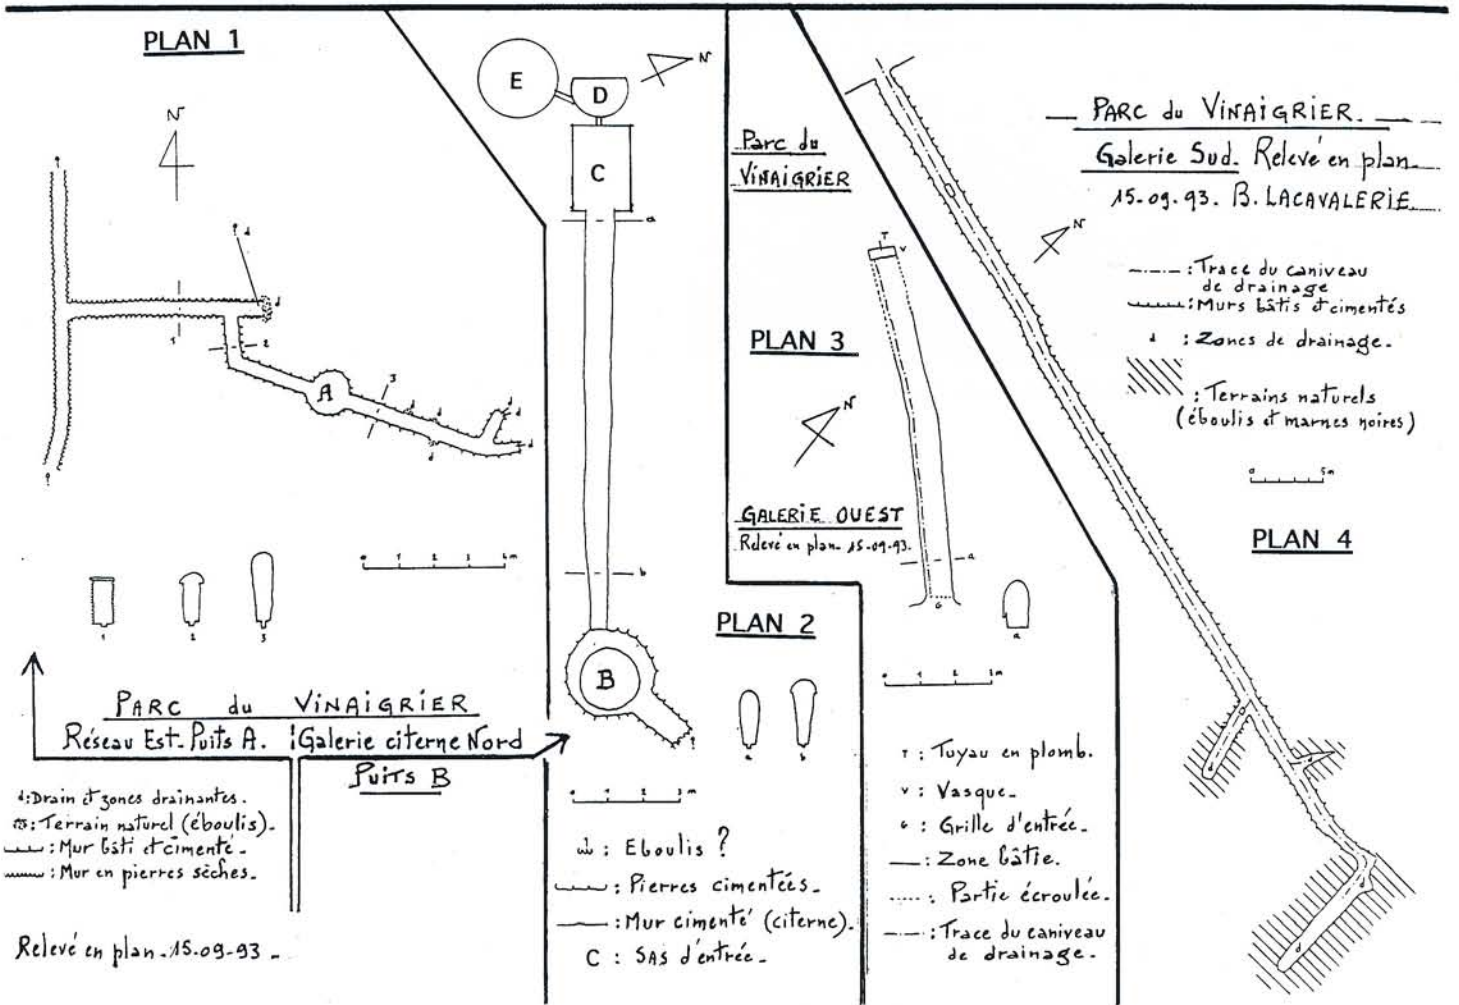 PLAN 1
N
?
? d
d
1
2
A
3
d
d
d
d
d
d
?
0 1 2 3 4m
1 2 3
PARC du VINAIGRIER
Réseau Est. Puits A.
Galerie citerne Nord
Puits B
d : Drain et zones drainantes.
: Terrain naturel (éboulis).
: Mur bâti et cimenté.
: Mur en pierres sèches.
Relevé en plan. 15-09-93.
E
D
N
C
a
b
B
?
PLAN 2
a b
0 1 2 3m
: Eboulis ?
: Pierres cimentées.
: Mur cimenté (citerne).
C : SAS d'entrée.
Parc du
VINAIGRIER
T
V
PLAN 3
N
GALERIE OUEST
Relevé en plan. 15-09-93.
a
G
a
0 1 2 3m
T : Tuyau en plomb.
V : Vasque.
G : Grille d'entrée.
: Zone bâtie.
: Partie écroulée.
: Trace du caniveau
de drainage.
PARC du VINAIGRIER.
Galerie Sud. Relevé en plan.
15-09-93. B. LACAVALERIE
N
: Trace du caniveau
de drainage
: Murs bâtis et cimentés
d : Zones de drainage.
: Terrains naturels
(éboulis et marnes noires)
0 5m
PLAN 4
d
d
d
d